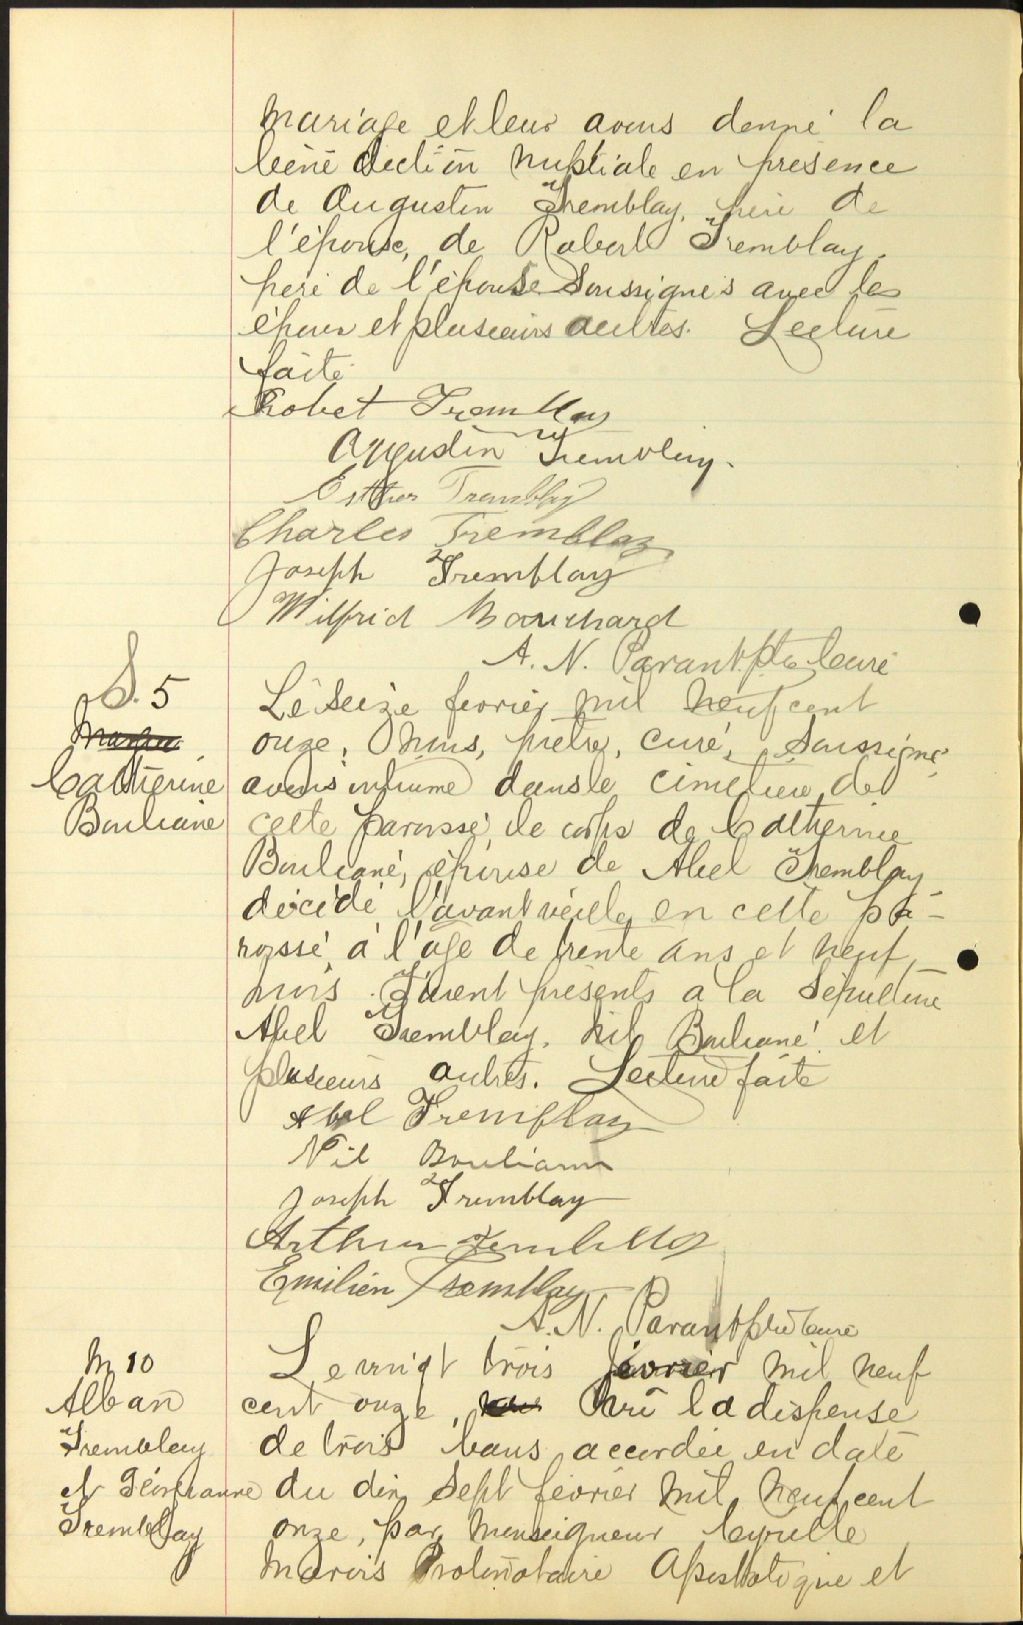 mariage et leur avons donné la
bénédiction nuptiale en présence
de Augustin Tremblay, père de
l'épouse, de Robert Tremblay,
père de l'épouse soussignés avec les
époux et plusieurs autres. Lecture
faite.
Robet Tremblay
Augustin Tremblay.
Esther Trembly
Charles Tremblay
Joseph Tremblay
Wilfrid Bouchard
A. N. Parant ptre Curé
S. 5
Catherine
Bouliane
Le seize fevrier mil neuf cent
onze, nous, prêtre, curé, soussigné,
avons inhumé dans le cimetière de
cette paroisse, le corps de Catherine
Bouliane, épouse de Abel Tremblay
décédé l'avant veille en cette pa-
roisse, à l'age de trente ans et neuf
mois. Furent présents a la sépulture
Abel Tremblay, Nil Bouliane et
plusieurs autres. Lecture faite
Abel Tremblay
Nil Bouliann
Joseph Tremblay
Arthur
Emilien Tremblay
A. N. Parant ptre Curé
M 10
Alban
Tremblay
et Géorianne
Tremblay
Le vingt trois février mil neuf
cent onze, Vu la dispense
de trois bans accordée en date
du dix sept février mil neuf cent
onze, par Monseigneur Cyrille
Marois Protonotaire Apostolique et